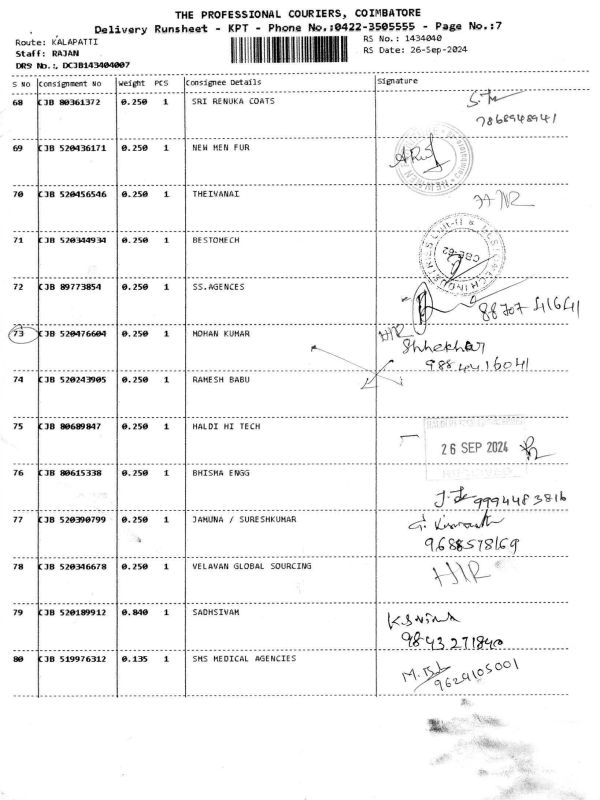 THE PROFESSIONAL COURIERS, COIMBATORE
Delivery Runsheet - KPT - Phone No.:0422-3505555 - Page No.:7
Route: KALAPATTI
RS No.: 1434040
Staff: RAJAN
RS Date: 26-Sep-2024
DRS No.:. DCJB143404007
S No Consignment No Weight PCS Consignee Details Signature
68 CJB 80361372 0.250 1 SRI RENUKA COATS
7868948941
69 CJB 520436171 0.250 1 NEW MEN FUR
70 CJB 520456546 0.250 1 THEIVANAI
71 CJB 520344934 0.250 1 BESTOMECH
CBE-62
72 CJB 89773854 0.250 1 SS.AGENCES
88707 41641
73 CJB 520476604 0.250 1 MOHAN KUMAR
Shhekhar
9884416041
74 CJB 520243905 0.250 1 RAMESH BABU
75 CJB 80689847 0.250 1 HALDI HI TECH
26 SEP 2024
76 CJB 80615338 0.250 1 BHISMA ENGG
9994483816
77 CJB 520390799 0.250 1 JAMUNA / SURESHKUMAR
9688578169
78 CJB 520346678 0.250 1 VELAVAN GLOBAL SOURCING
79 CJB 520189912 0.840 1 SADHSIVAM
9843271840
80 CJB 519976312 0.135 1 SMS MEDICAL AGENCIES
9629105001